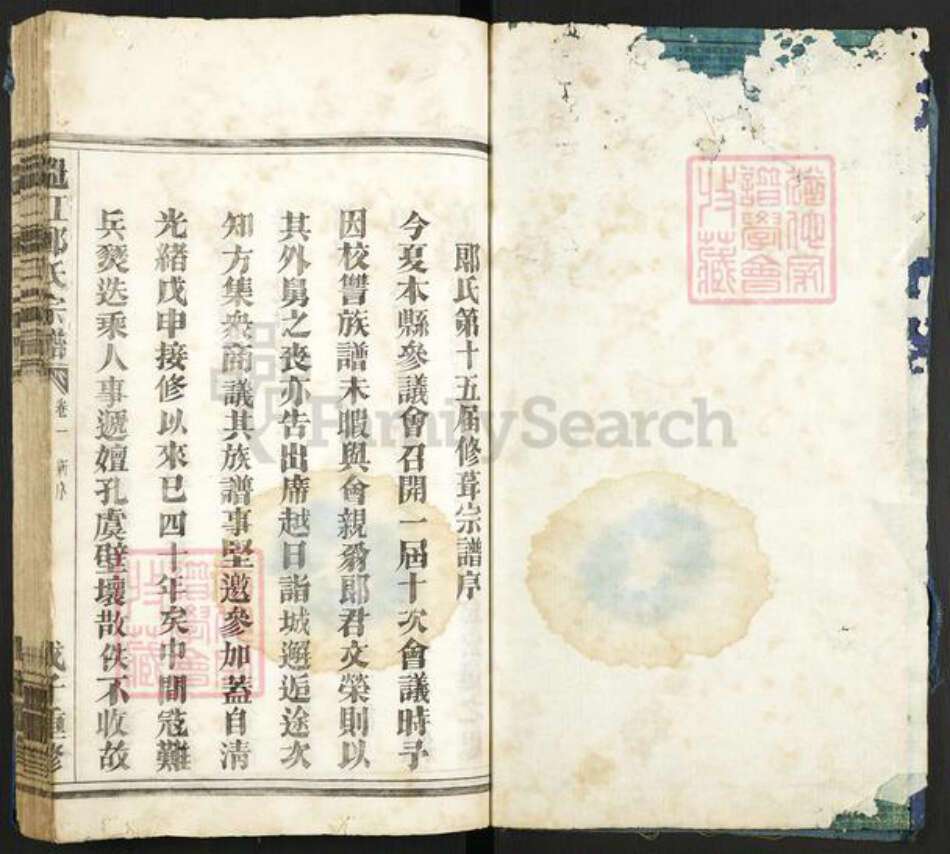 郎氏第十五届修葺宗譜序
今夏本縣參議會召開一届十次會議時予
因校讐族譜未暇與會親翁郎君文榮則以
其外舅之喪亦告出席越日詣城邂逅途次
知方集衆商議其族譜事堅邀參加蓋自清
光緒戊申接修以來已四十年矣中間寇難
兵燹迭乘人事遞嬗孔虞壁壞散佚不收故
郎氏宗譜
卷一
新序
戊子重修
譜學會
收藏
FamilySearch